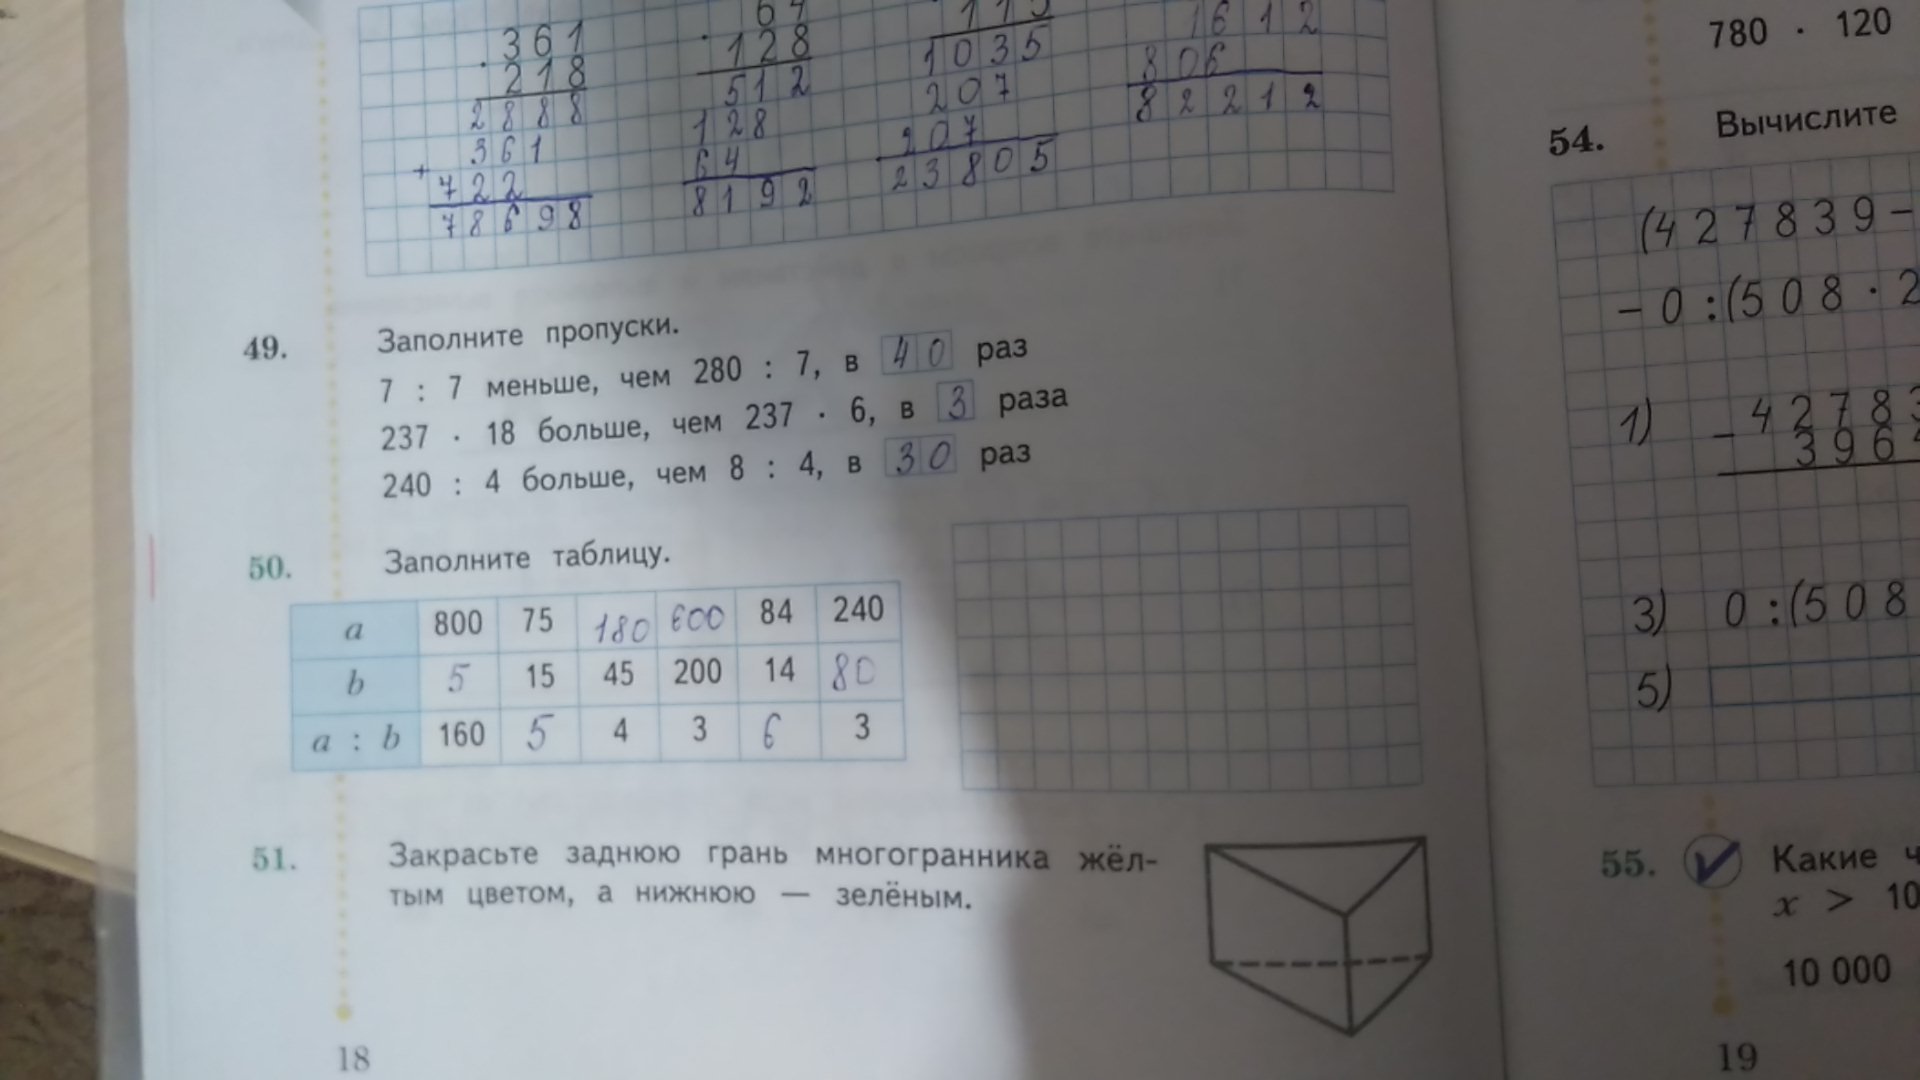 361
· 218
2888
361
+ 722
78698
64
· 128
512
128
64
8192
115
1035
207
207
23805
1612
806
82212
49. Заполните пропуски.
7 : 7 меньше, чем 280 : 7, в 40 раз
237 · 18 больше, чем 237 · 6, в 3 раза
240 : 4 больше, чем 8 : 4, в 30 раз
50. Заполните таблицу.
a 800 75 180 600 84 240
b 5 15 45 200 14 80
a : b 160 5 4 3 6 3
51. Закрасьте заднюю грань многогранника жёл-
тым цветом, а нижнюю — зелёным.
18
780 · 120
54. Вычислите
(427839 –
– 0 : (508 · 2
1) – 42783
396
3) 0 : (508
5)
55. Какие ч
x > 10
10 000
19